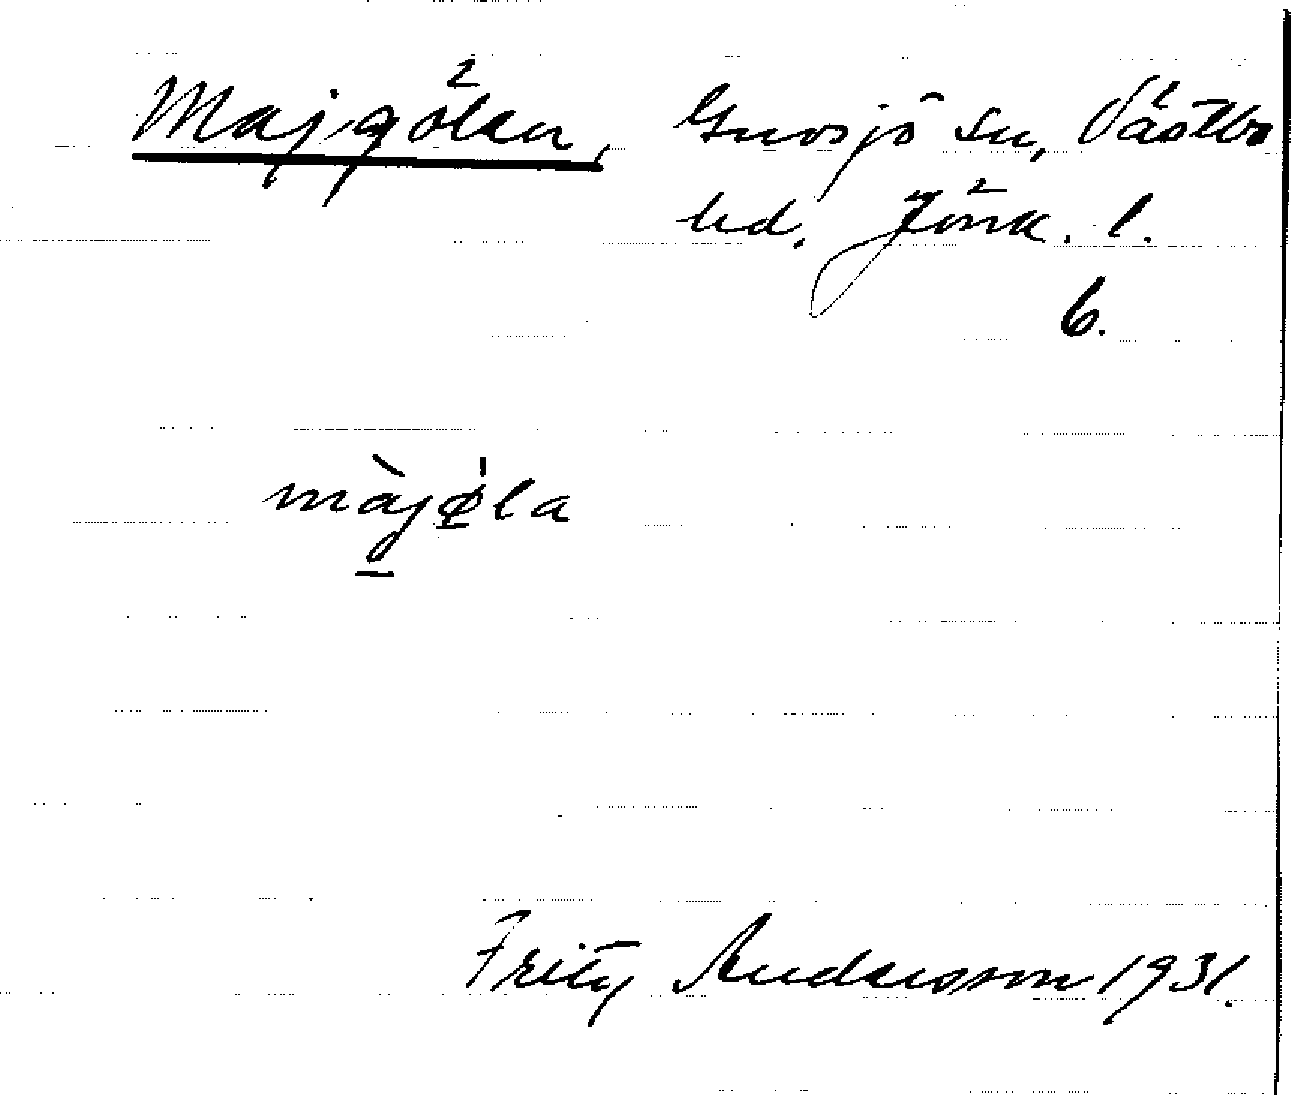 Majgölen, Gnosjö sn, Västbo
hd. Jönk. l.
6.
màjǿla
Fritz Andersson 1931.